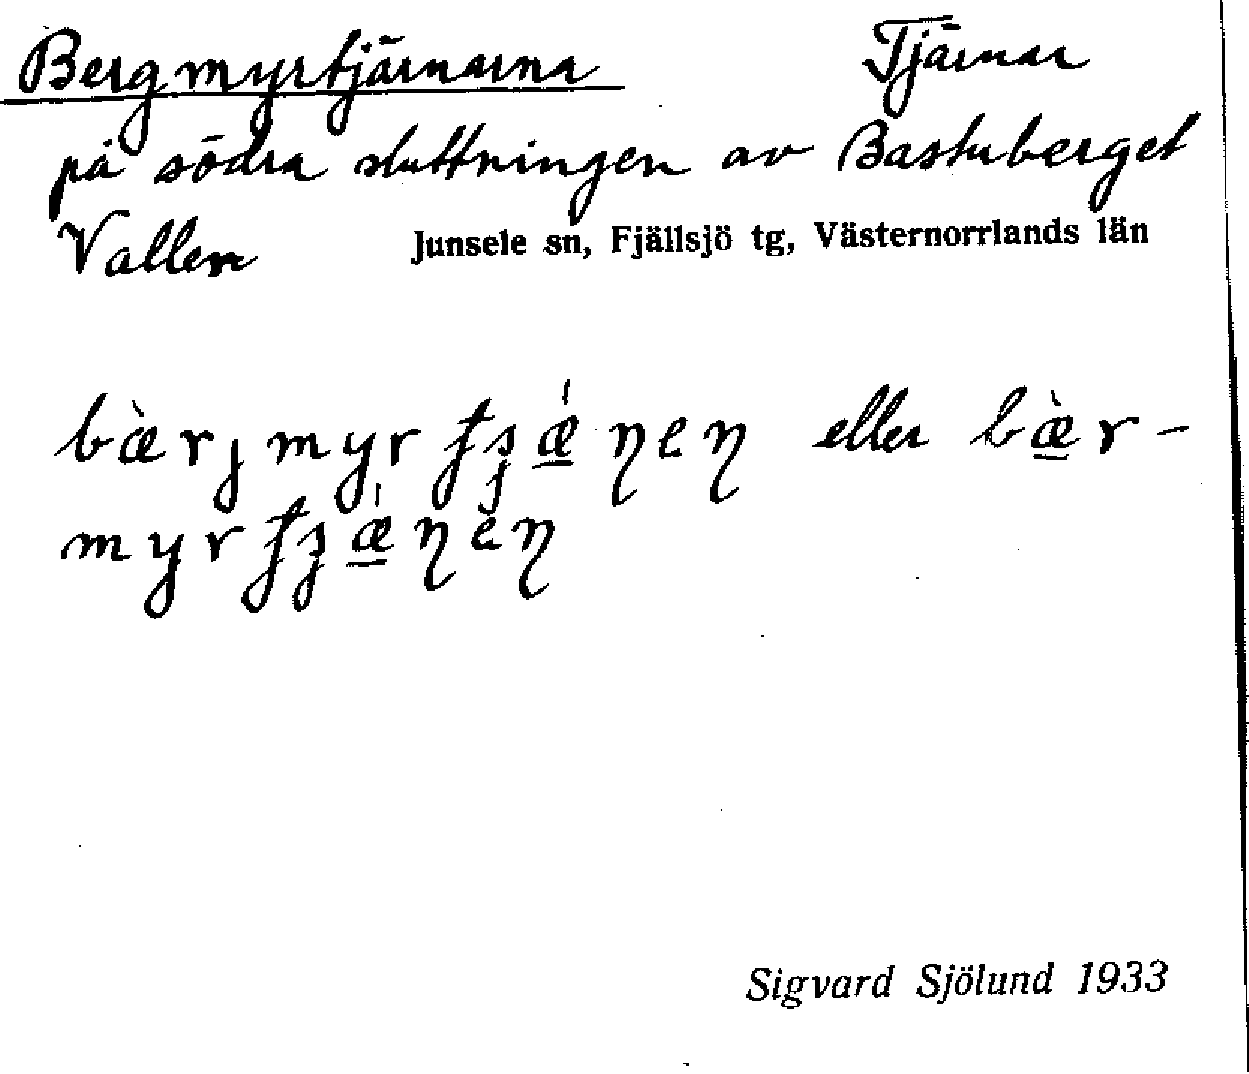 Bergmyrtjärnarna Tjärnar
på södra sluttningen av Bastuberget
Vallen Junsele sn, Fjällsjö tg, Västernorrlands län
bæ̀rjmyrʃʒǽ̱ηeη eller bæ̱̀r-
myrʃʒǽ̱ηeη
Sigvard Sjölund 1933